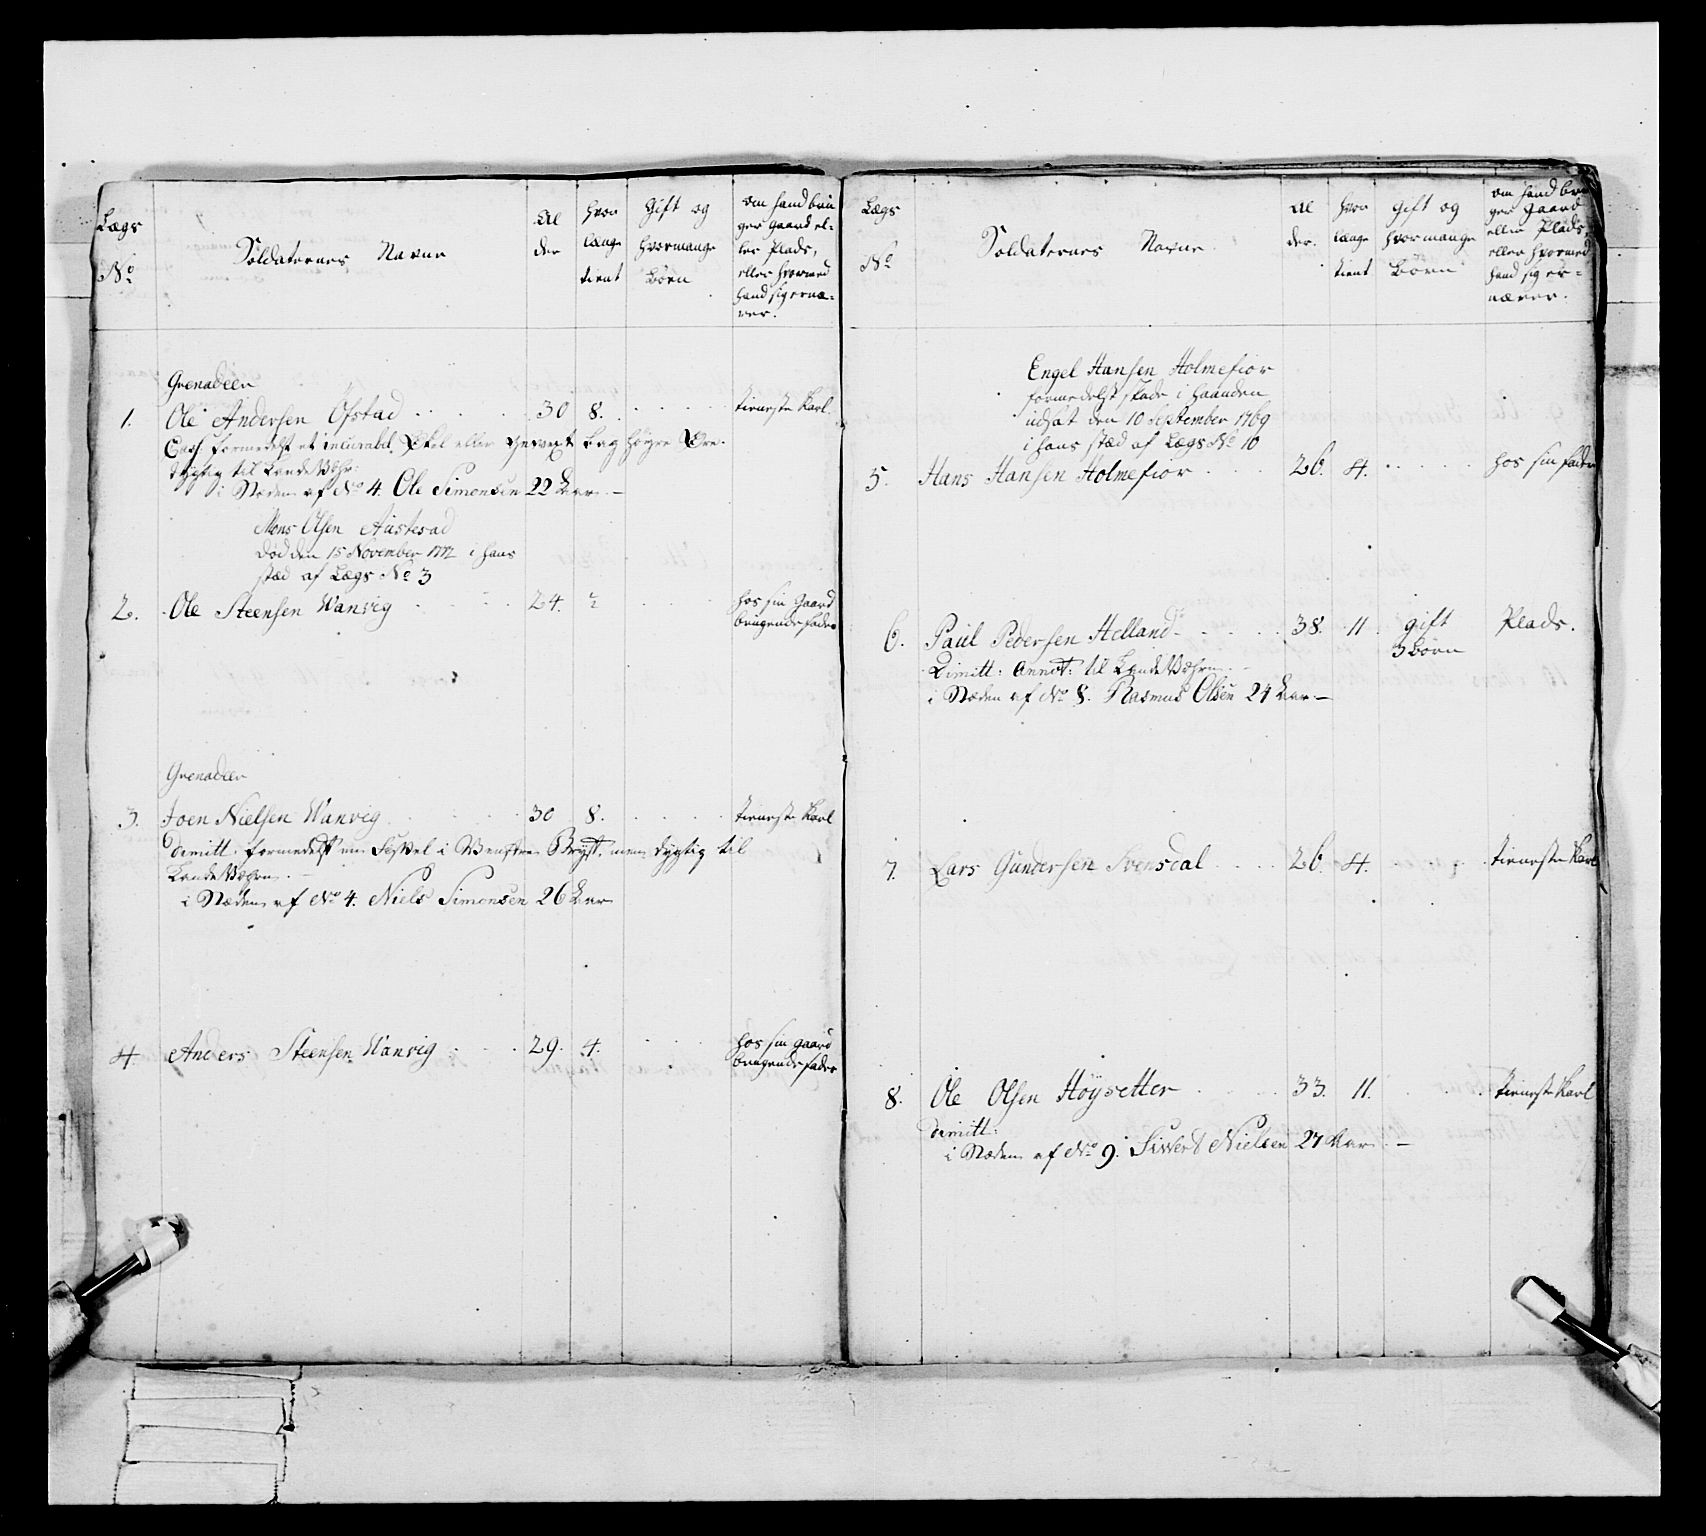 Lægs
No
Soldaternes Navne
Al
der
hvor
længe
tient
Gift og
hvormange
Børn
om hand bru
ger gaard el-
ler Plads,
eller hvormed
hand sig ernæ-
rer.
Grenadeer
1. Ole Andersen Ofstad 30 8. tieneste Karl.
Cass. formedelst et incurabel eller bag høyre Øre.
dygtig til LandeVæhrn
i Stæden af No 4. Ole Simonsen 22 Aar. —
Mons Olsen Austesad
død den 15 November 1772 i hans
stæd af Lægs No 3
2. Ole Steensen Wanvig 24. hos sin gaard
brugende fader
Grenadeer
3. Joen Nielsen Wanvig 30 8. tieneste Karl
dimitt: formedelst en i Venstre Bryst, men dygtig til
LandeVæhrn. —
i Stæden af No 4. Niels Simonsen 26 Aar
4. Anders Steensen Wanvig 29. 4. hos sin gaard
brugende fader
Lægs
No
Soldaternes Navne
Al
der.
hvor
længe
tient
gift og
hvormange
Børn
om hand bru
ger gaard
eller Plads,
eller hvormed
hand sig er-
nærer.
Engel Hansen Holmefior
formedelst skade i haanden
udsat den 10 September 1769
i hans stæd af Lægs No 10
5. Hans Hansen Holmefior 26. 4. hos sin fader
6. Paul Pedersen Helland 38. 11. gift Plads.
3 børn
Dimitt: Annot: til LandeVæhrn. —
i Stæden af No 8. Rasmus Olsen 24 Aar —
7. Lars Gundersen Svensdal 26. 4. tieneste Karl
8. Ole Olsen Høysetter 33. 11. tieneste Karl
dimitt:
i Stæden af No 9. Sivert Nielsen 27 Aar. —